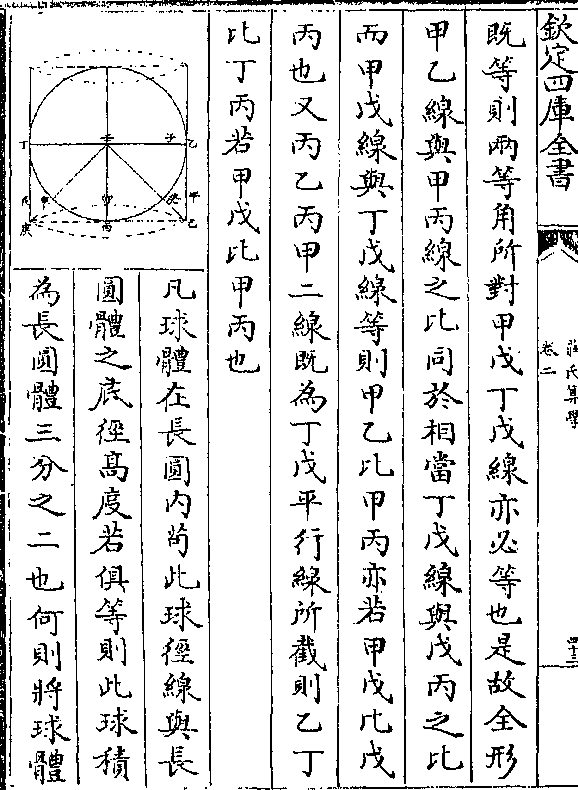 欽定四庫全書
莊氏算學
卷二
四十三
既等則兩等角所對甲戊丁戊線亦必等也是故全形
甲乙線與甲丙線之比同於相當丁戊線與戊丙之比
而甲戊線與丁戊線等則甲乙比甲丙亦若甲戊比戊
丙也又丙乙丙甲二線既為丁戊平行線所截則乙丁
比丁丙若甲戊比甲丙也
凡球體在長圓內茍此球徑線與長
圓體之底徑高度若俱等則此球積
為長圓體三分之二也何則將球體
丁
壬
子
乙
甲
癸
己
丙
庚